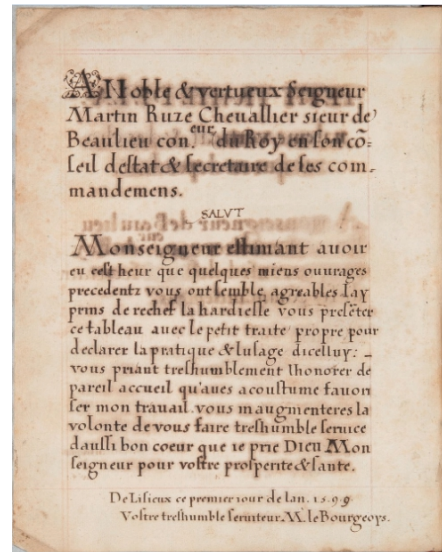 A Noble & vertueux Seigneur
Martin Ruze Cheuallier sieur de
Beaulieu con.eur du Roy en son cõ=
seil destat & secretaire de ses com-
mandemens.
SALVT
Monseigneur estimant auoir
eu cest heur que quelques miens ouurages
precedentz vous ont semble agreables Jay
prins de rechef la hardiesse vous preséter
ce tableau auec le petit traite propre pour
declarer la pratique & lusage dicelluy: -
vous priant treshumblement lhonorer de
pareil accueil qu'aues acoustume fauori
ser mon trauail. vous maugmenteres la
volonte de vous faire treshumble seruice
daussi bon coeur que ie prie DIEU Mon
seigneur pour vostre prosperite & sante.
De Lisieux ce premier iour de lan. 1599
Vostre treshumble seruiteur. M. le Bourgeoys.